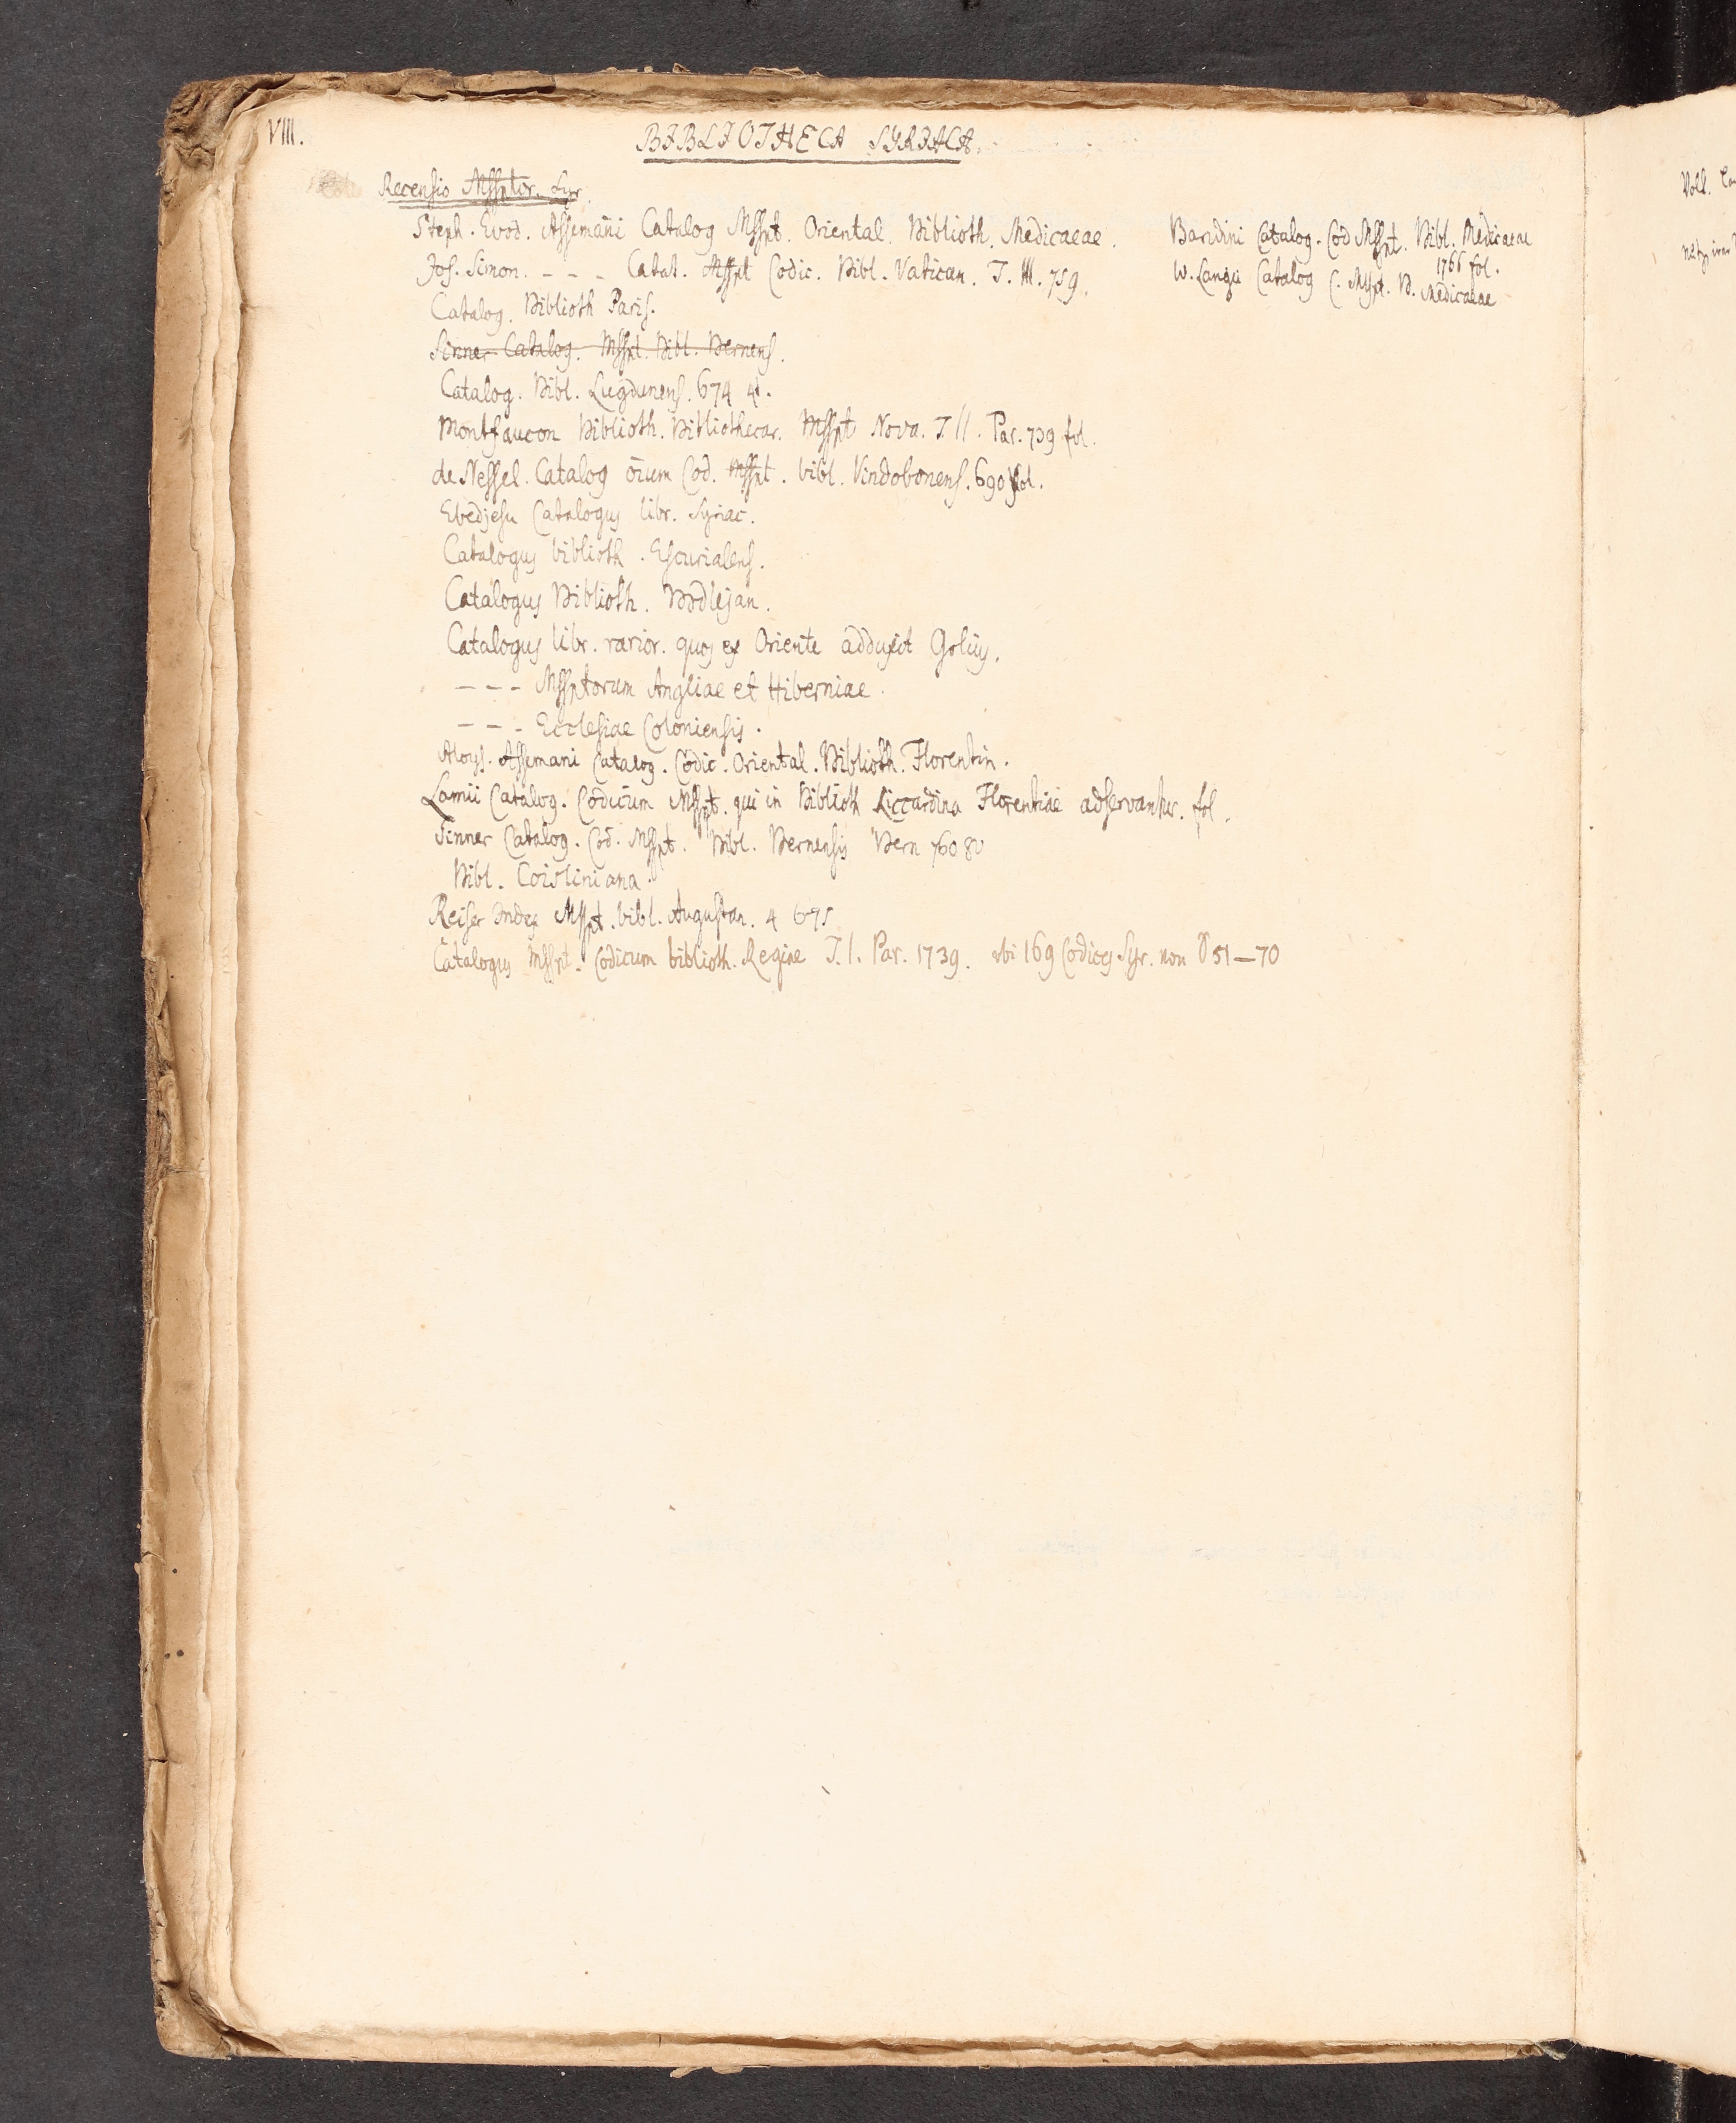 VIII.
BIBLIOTHECA SYRIACA.
Recensio Mssptor. Syr.
Steph. Evod. Assemani Catalog Msspt. Oriental. Biblioth. Medicaeae.
Bandini Catalog. Cod Msspt. Bibl. Medicaeae
1766 fol.
Jos. Simon. - - - Catal. Msspt Codic. Bibl. Vatican. T. III. 759.
W. Langii Catalog C. Msspt. B. Medicaeae
Catalog. Biblioth Paris.
Sinner Catalog. Msspt. Bibl. Bernens.
Catalog. Bibl. Lugdunens. 674 4.
Montfaucon Biblioth. Bibliothecar. Msspt Nova. T. II. Par. 739 fol.
de Nessel. Catalog õium Cod. Msspt. bibl. Vindobonens. 690 fol.
Ebedjesu Catalogus libr. Syriac.
Catalogus biblioth. Escurialens.
Catalogus Biblioth. Bodlejan.
Catalogus libr. rarior. quos ex Oriente adduxit Golius.
- - - Mssptorum Angliae et Hiberniae.
- - - Ecclesiae Coloniensis.
Aloys. Assemani Catalog. Codic. Oriental. Biblioth. Florentin.
Lamii Catalog. Codicum Msspt. qui in Biblioth Riccardina Florentiae adservantur. fol.
Sinner Catalog. Cod. Msspt. Bibl. Bernensis Bern 760 8v
Bibl. Coisliniana.
Reiser Index Msspt. bibl. Augustan. 4 675
Catalogus Msspt. Codicum biblioth. Regiae T. I. Par. 1739. ubi 169 Codices Syr. non 51—70
Voll.